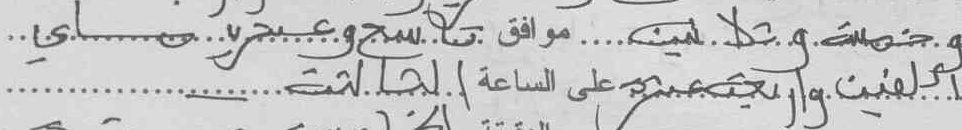 و خمسة و ثلاثين .... موافق تاسع و عشرين ماي ..
ألفين و أربعة عشر على الساعة الثالثة